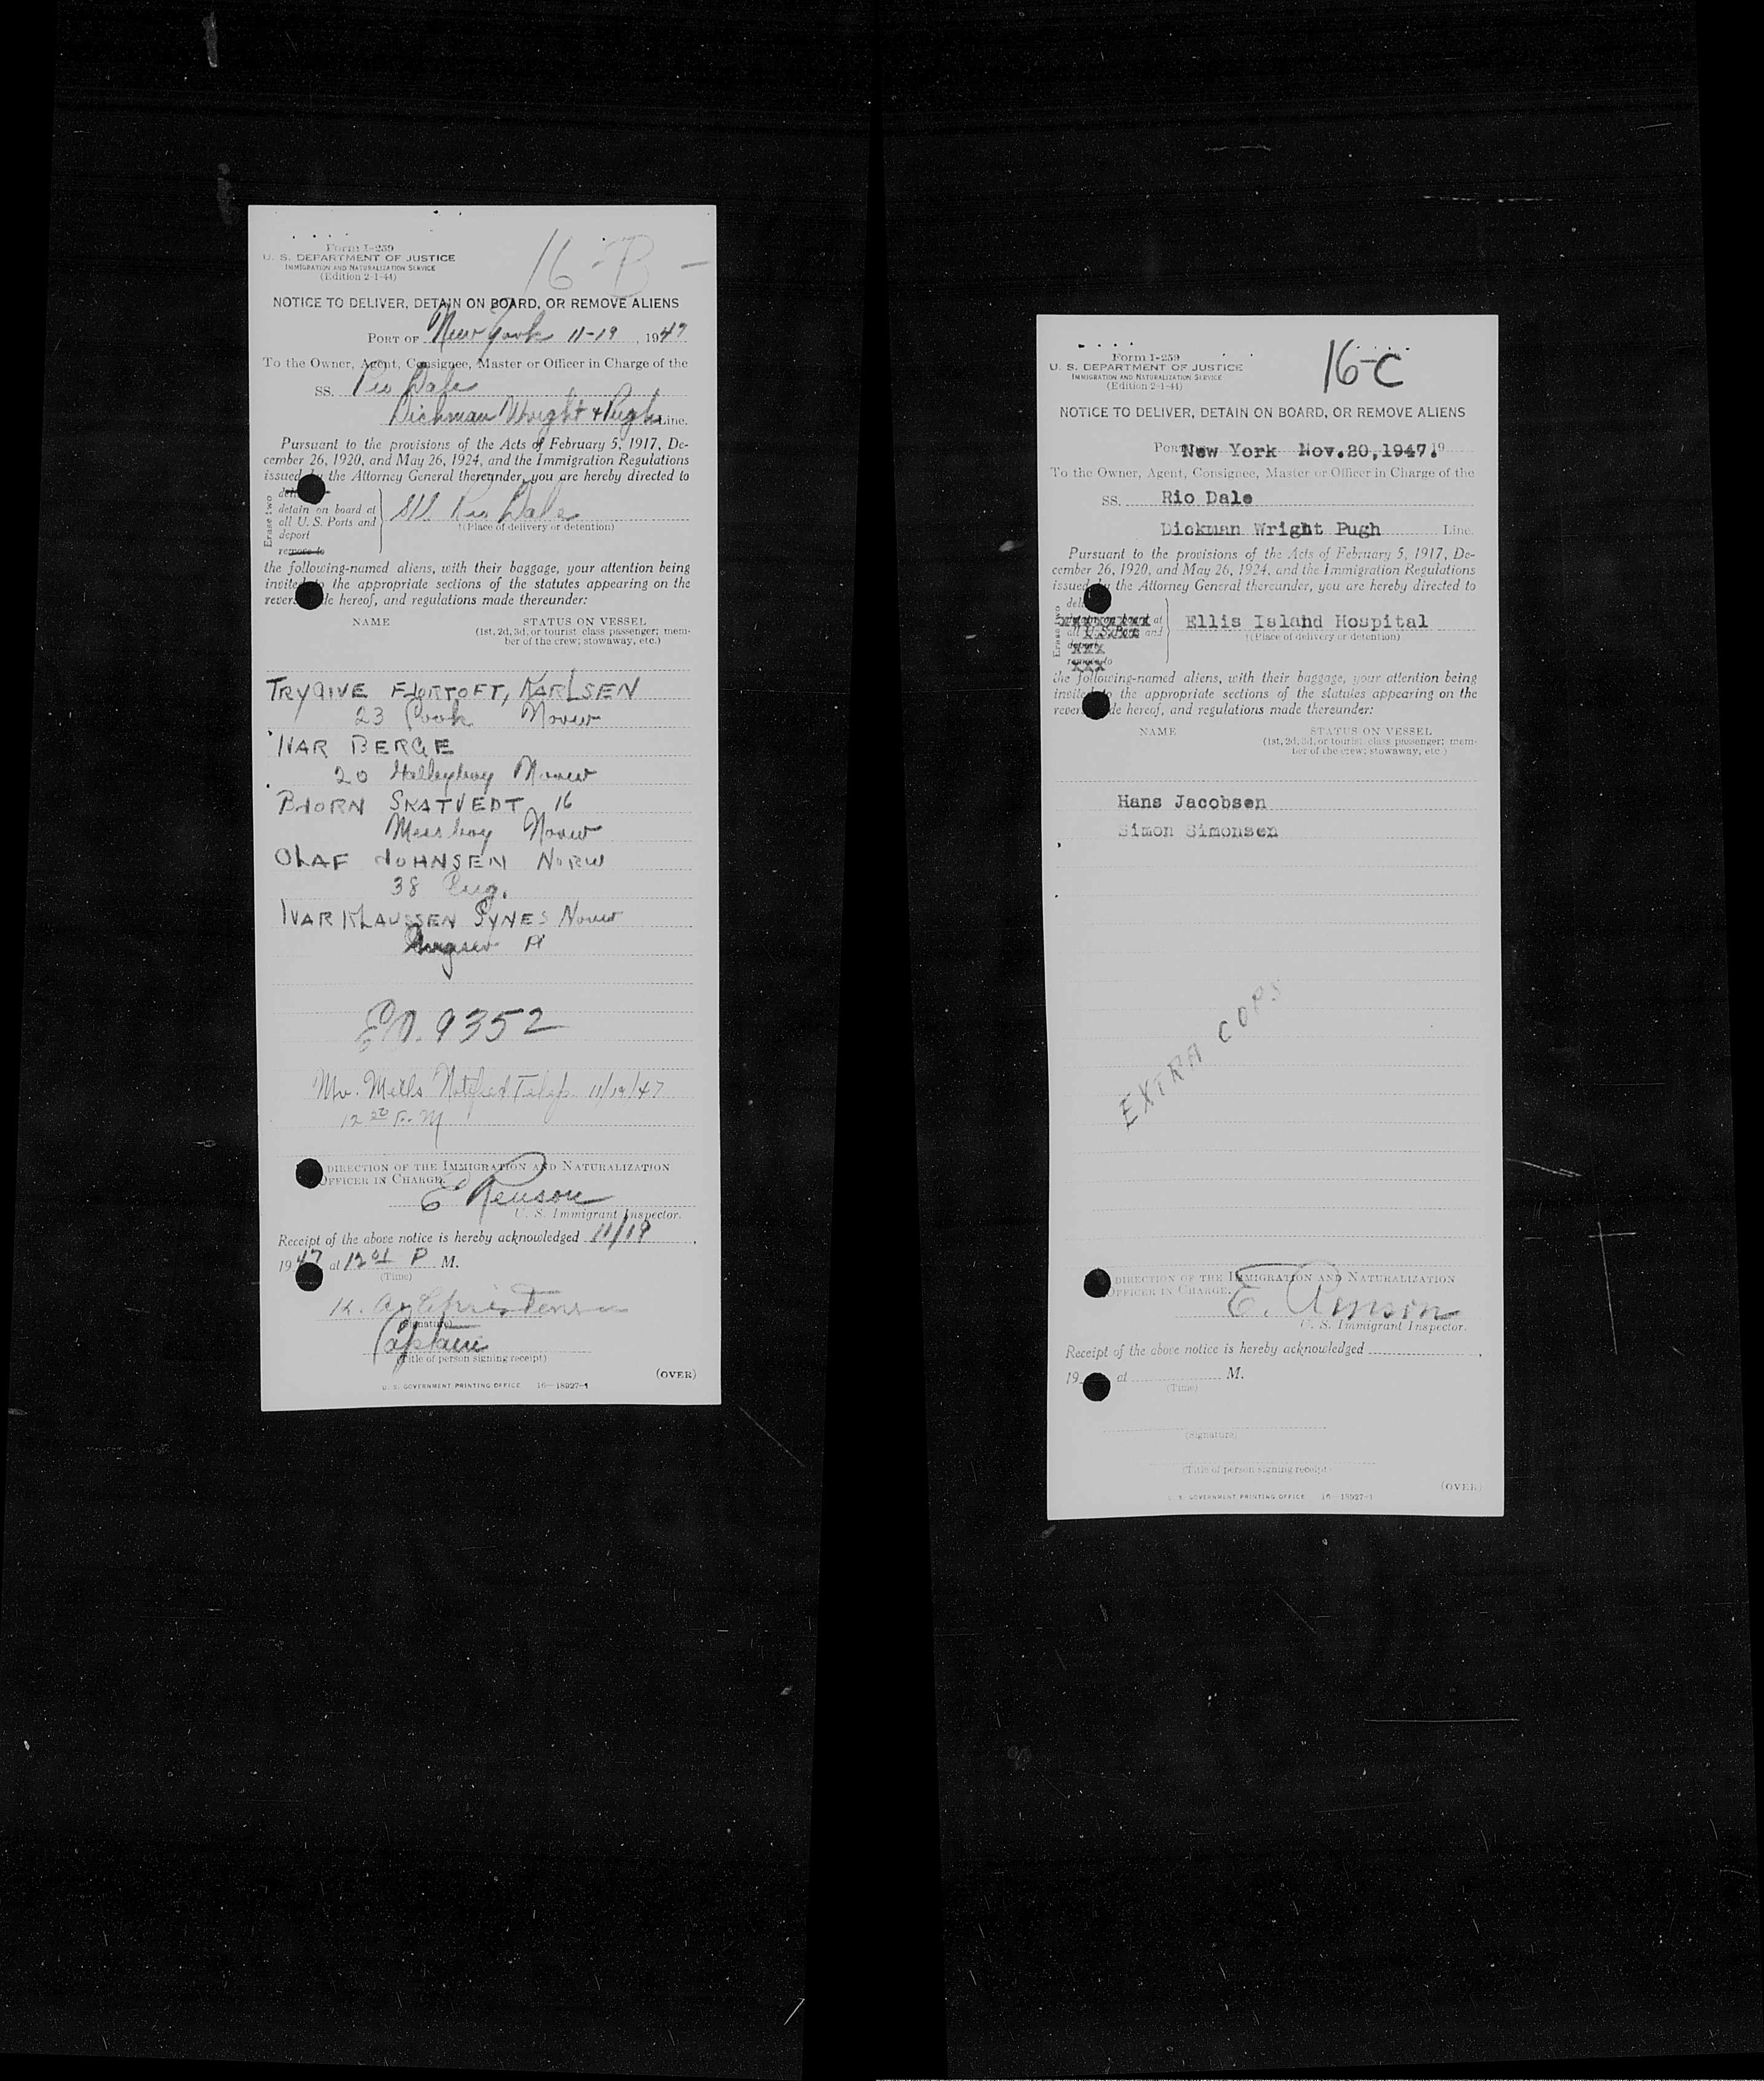 Form I-259
U. S. DEPARTMENT OF JUSTICE
IMMIGRATION AND NATURALIZATION SERVICE
(Edition 2-1-44)
16-B-
NOTICE TO DELIVER, DETAIN ON BOARD, OR REMOVE ALIENS
PORT OF New York 11-19, 1947
To the Owner, Agent, Consignee, Master or Officer in Charge of the
SS. Rio Dale
Dickman Wright + Pugh Line.
Pursuant to the provisions of the Acts of February 5, 1917, De-
cember 26, 1920, and May 26, 1924, and the Immigration Regulations
issued by the Attorney General thereunder, you are hereby directed to
Erase two
detain on board at
all U. S. Ports and
deport
remove to
SS. Rio Dale
(Place of delivery or detention)
the following-named aliens, with their baggage, your attention being
invited to the appropriate sections of the statutes appearing on the
reverse side hereof, and regulations made thereunder:
NAME STATUS ON VESSEL
(1st, 2d, 3d, or tourist class passenger; mem-
ber of the crew; stowaway, etc.)
TRYGIVE FJORTOFT, KARLSEN
23 Cook Norw
IVAR BERGE
20 Galleyboy Norw
BJORN SKATVEDT 16
Messboy Norw
OLAF JOHNSEN NORW
38 Eng.
IVAR KLAUSSEN SYNES Norw
EO. 9352
Mr. Mills Notified Telep. 11/19/47
12 20 P. M
DIRECTION OF THE IMMIGRATION AND NATURALIZATION
OFFICER IN CHARGE.
E Renson
U. S. Immigrant Inspector.
Receipt of the above notice is hereby acknowledged 11/19,
1947 at 12 01 P M.
(Time)
K. A. Christensen
(Signature)
Captain
(Title of person signing receipt)
(OVER)
U. S. GOVERNMENT PRINTING OFFICE 16—18927-1
Form I-259
U. S. DEPARTMENT OF JUSTICE
IMMIGRATION AND NATURALIZATION SERVICE
(Edition 2-1-44)
16-C
NOTICE TO DELIVER, DETAIN ON BOARD, OR REMOVE ALIENS
Port New York Nov.20,1947. 19
To the Owner, Agent, Consignee, Master or Officer in Charge of the
SS. Rio Dale
Dickman Wright Pugh Line.
Pursuant to the provisions of the Acts of February 5, 1917, De-
cember 26, 1920, and May 26, 1924, and the Immigration Regulations
issued by the Attorney General thereunder, you are hereby directed to
Erase two
detain on board at
all U. S. Ports and
deport
remove to
Ellis Island Hospital
(Place of delivery or detention)
the following-named aliens, with their baggage, your attention being
invited to the appropriate sections of the statutes appearing on the
reverse side hereof, and regulations made thereunder:
NAME STATUS ON VESSEL
(1st, 2d, 3d, or tourist class passenger; mem-
ber of the crew; stowaway, etc.)
Hans Jacobsen
Simon Simonsen
EXTRA COPY
DIRECTION OF THE IMMIGRATION AND NATURALIZATION
OFFICER IN CHARGE.
E. Renson
U. S. Immigrant Inspector.
Receipt of the above notice is hereby acknowledged ,
19 at M.
(Time)
(Signature)
(Title of person signing receipt)
(OVER)
U. S. GOVERNMENT PRINTING OFFICE 16—18927-1